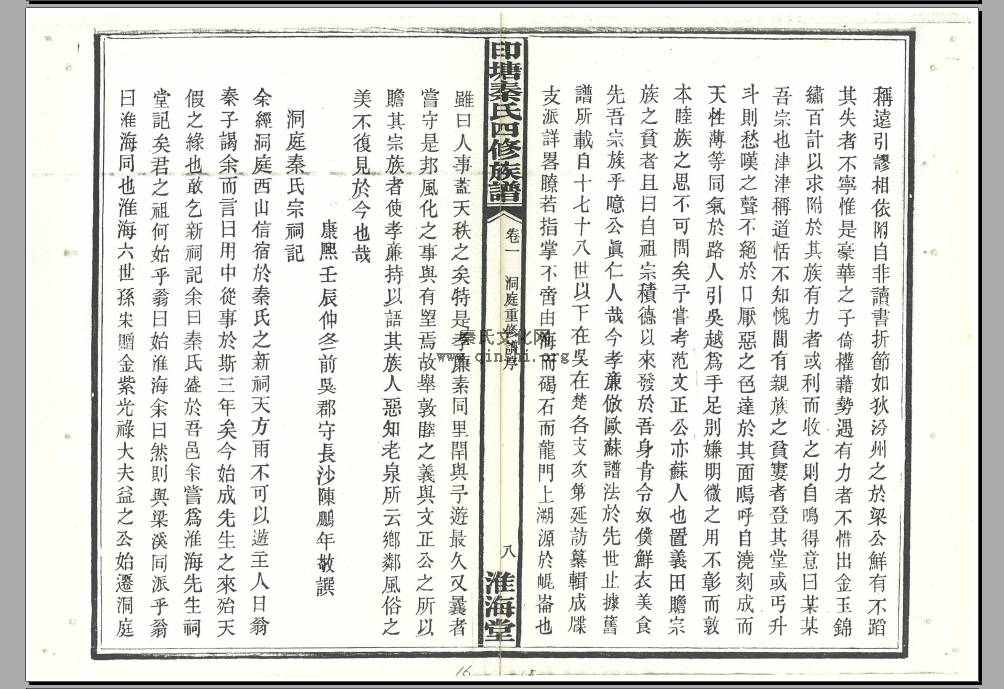 稱遠引謬相依附自非讀書折節如狄汾州之於梁公鮮有不蹈
其失者不寧惟是豪華之子倚權藉勢遇有力者不惜出金玉錦
繡百計以求附於其族有力者或利而收之則自鳴得意曰某某
吾宗也津津稱道恬不知愧間有親族之貧窶者登其堂或丐升
斗則愁嘆之聲不絕於口厭惡之色達於其面嗚呼自澆刻成而
天性薄等同氣於路人引吳越爲手足別嫌明微之用不彰而敦
本睦族之思不可問矣予嘗考范文正公亦蘇人也置義田贍宗
族之貧者且曰自祖宗積德以來發於吾身肯令奴僕鮮衣美食
先吾宗族乎噫公眞仁人哉今孝亷倣歐蘇譜法於先世止據舊
譜所載自十七十八世以下在吳在楚各支次第延訪纂輯成牒
支派詳畧瞭若指掌不啻由海而碣石而龍門上溯源於崐崙也
印塘秦氏四修族譜
卷一
洞庭重修譜序
八
淮海堂
雖曰人事蓋天秩之矣特是孝亷素同里閈與予遊最久又曩者
嘗守是邦風化之事與有望焉故舉敦睦之義與文正公之所以
贍其宗族者使孝亷持以語其族人惡知老泉所云鄉鄰風俗之
美不復見於今也哉
康熙壬辰仲冬前吳郡守長沙陳鵬年敬譔
洞庭秦氏宗祠記
余經洞庭西山信宿於秦氏之新祠天方雨不可以遊主人日翁
秦子謁余而言曰用中從事於斯三年矣今始成先生之來殆天
假之緣也敢乞新祠記余曰秦氏盛於吾邑余嘗爲淮海先生祠
堂記矣君之祖何始乎翁曰始淮海余曰然則與梁溪同派乎翁
曰淮海同也淮海六世孫宋贈金紫光祿大夫益之公始遷洞庭
秦氏文化网
www.qinshi.org
16
15